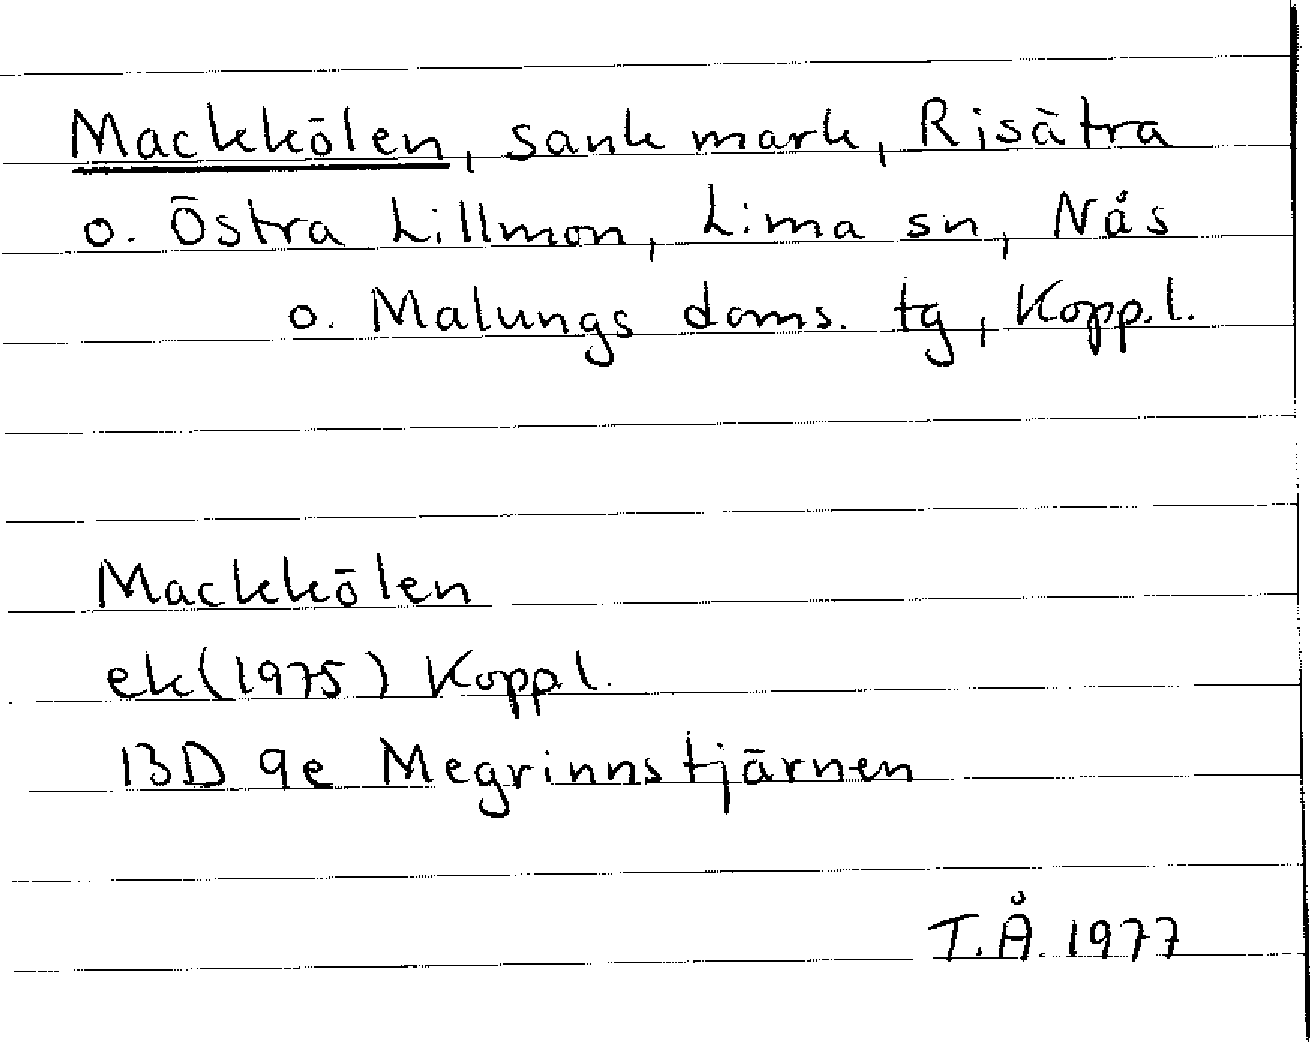 Mackkölen, sank mark, Risätra
o. Östra Lillmon, Lima sn, Nås
o. Malungs doms. tg, Kopp.l.
Mackkölen
ek(1975) Koppl.
13D 9e Megrinnstjärnen
T.Å. 1977